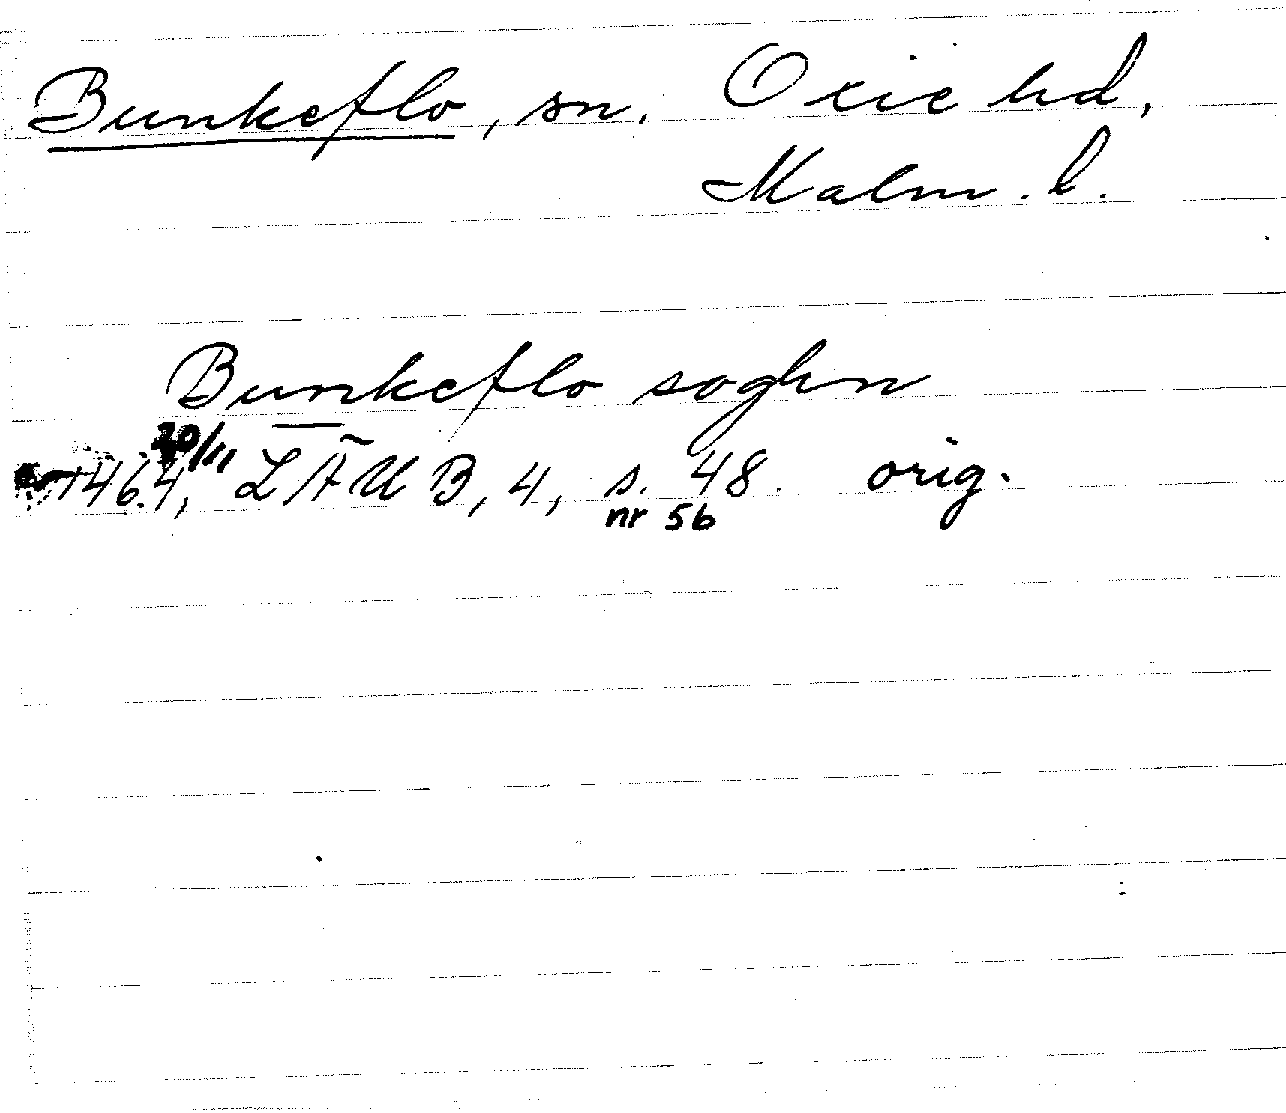 Bunkeflo, sn. Oxie hd,
Malm. l.
Bunkeflo soghn
20/11
1464, LÄUB, 4, s. 48. orig.
nr 56